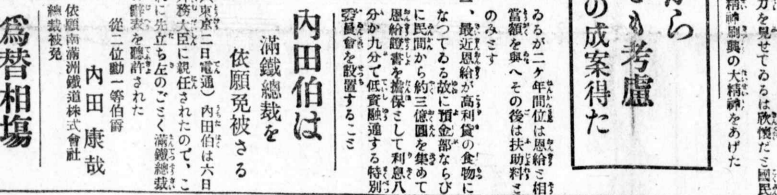 力を見せてゐるは欣懷だと國民
精神剏興の大精神をあげた
から
も考慮
の成案得た
ゐるが二ヶ年間位は恩給と相
當額を與へその後は扶助料と
のみとす
一、最近恩給が高利貸の食物に
なつてゐる故に預金部ならび
に民間から約三億圓を集めて
恩給證書を擔保として利息八
分か九分で低資融通する特別
委員會を設置すること
內田伯は
滿鐵總裁を
依願免被さる
(東京二日電通)內田伯は六日
務大臣に親任されたので、こ
に先立ち左のごとく滿鐵總裁
辭表を聽許された
從二位勳一等伯爵
內田康哉
依願南滿洲鐵道株式會社
總裁被免
爲替相場